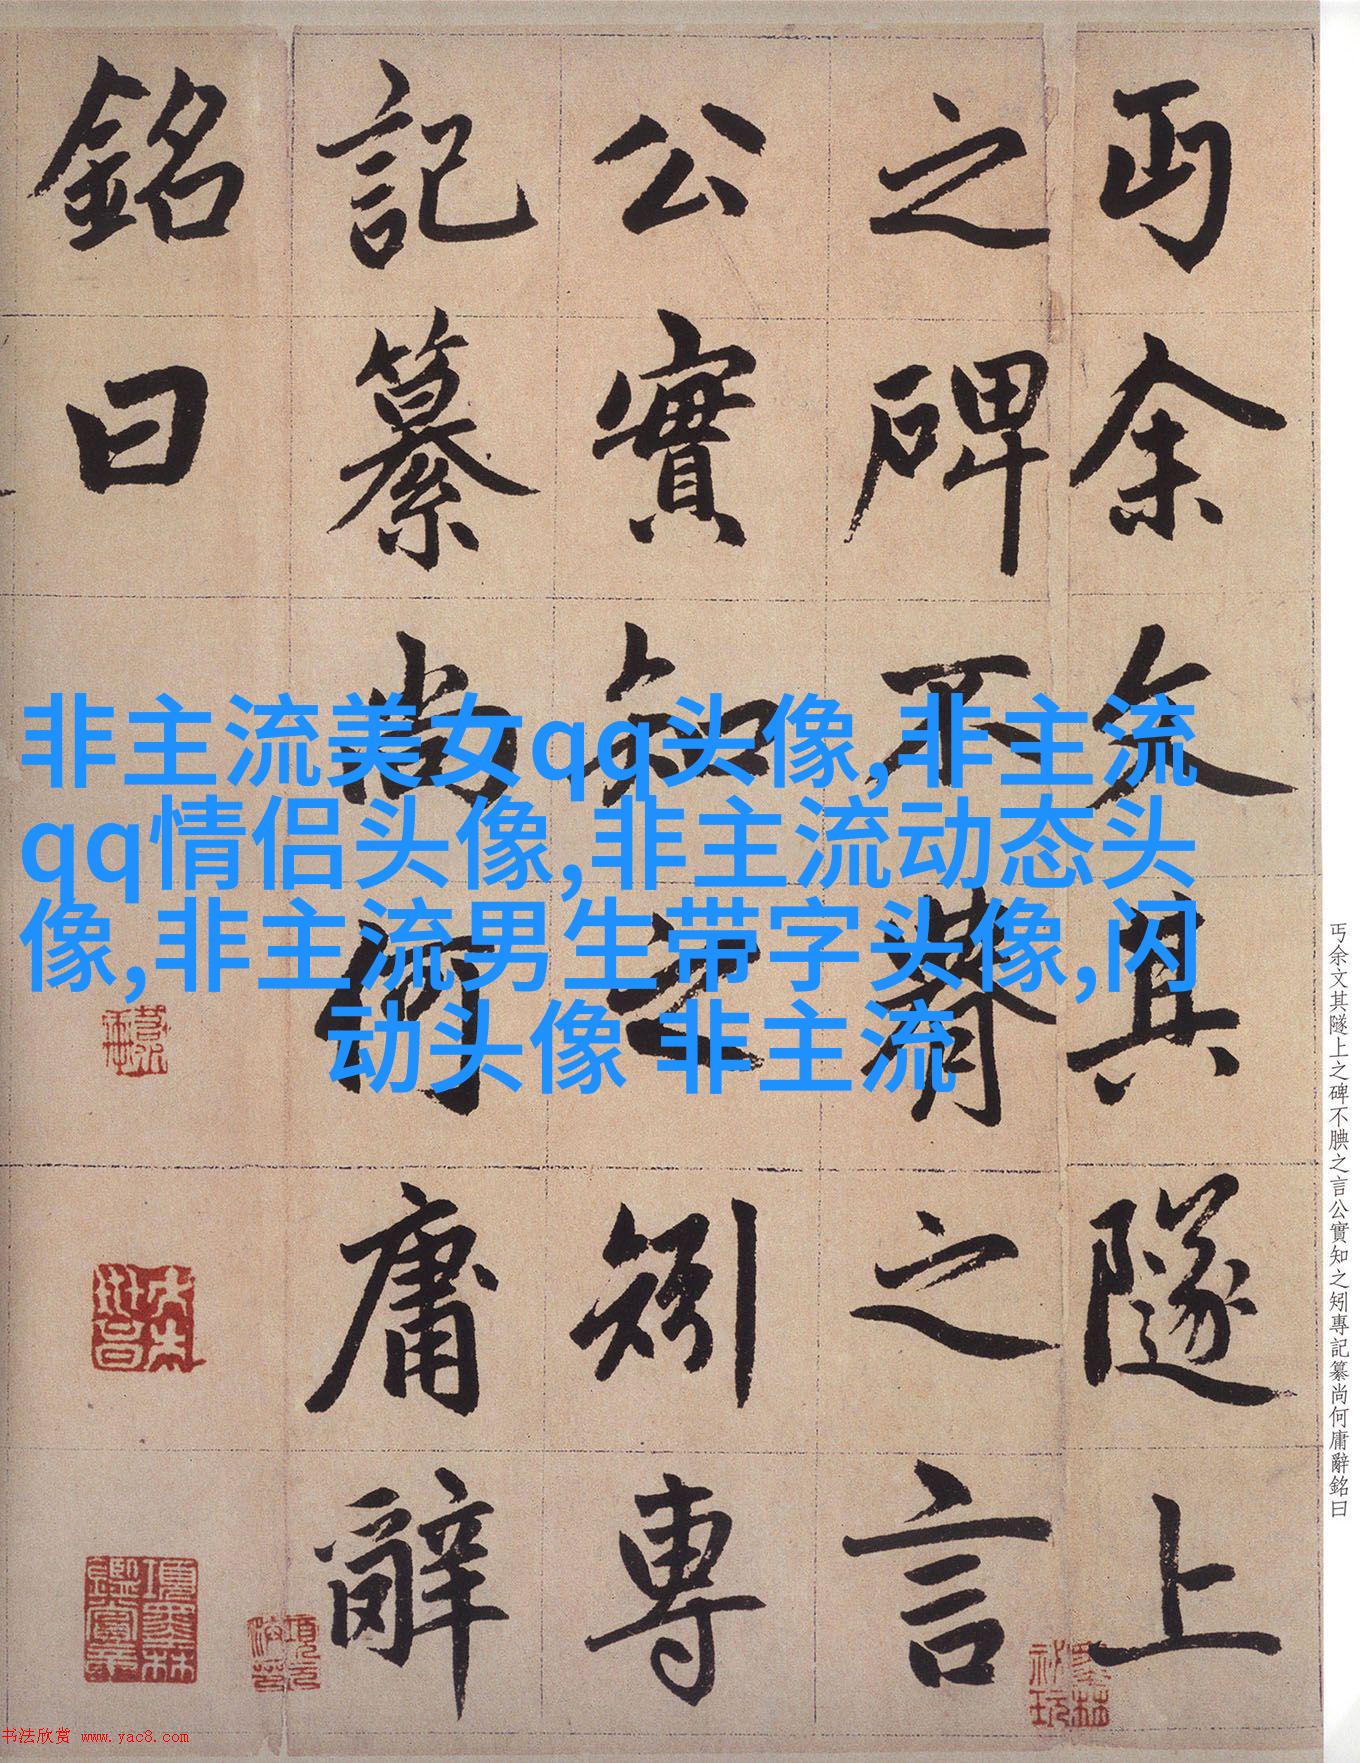 丐余文其隧上
之碑不腆之言
公實知之矧專
記纂尚何庸辭
銘曰
非主流美女qq头像,非主流
qq情侣头像,非主流动态头
像,非主流男生带字头像,闪
动头像 非主流
丐余文其隧上之碑不腆之言公實知之矧專記纂尚何庸辭銘曰
項墨林鑑賞章
书法欣赏 www.yac8.com